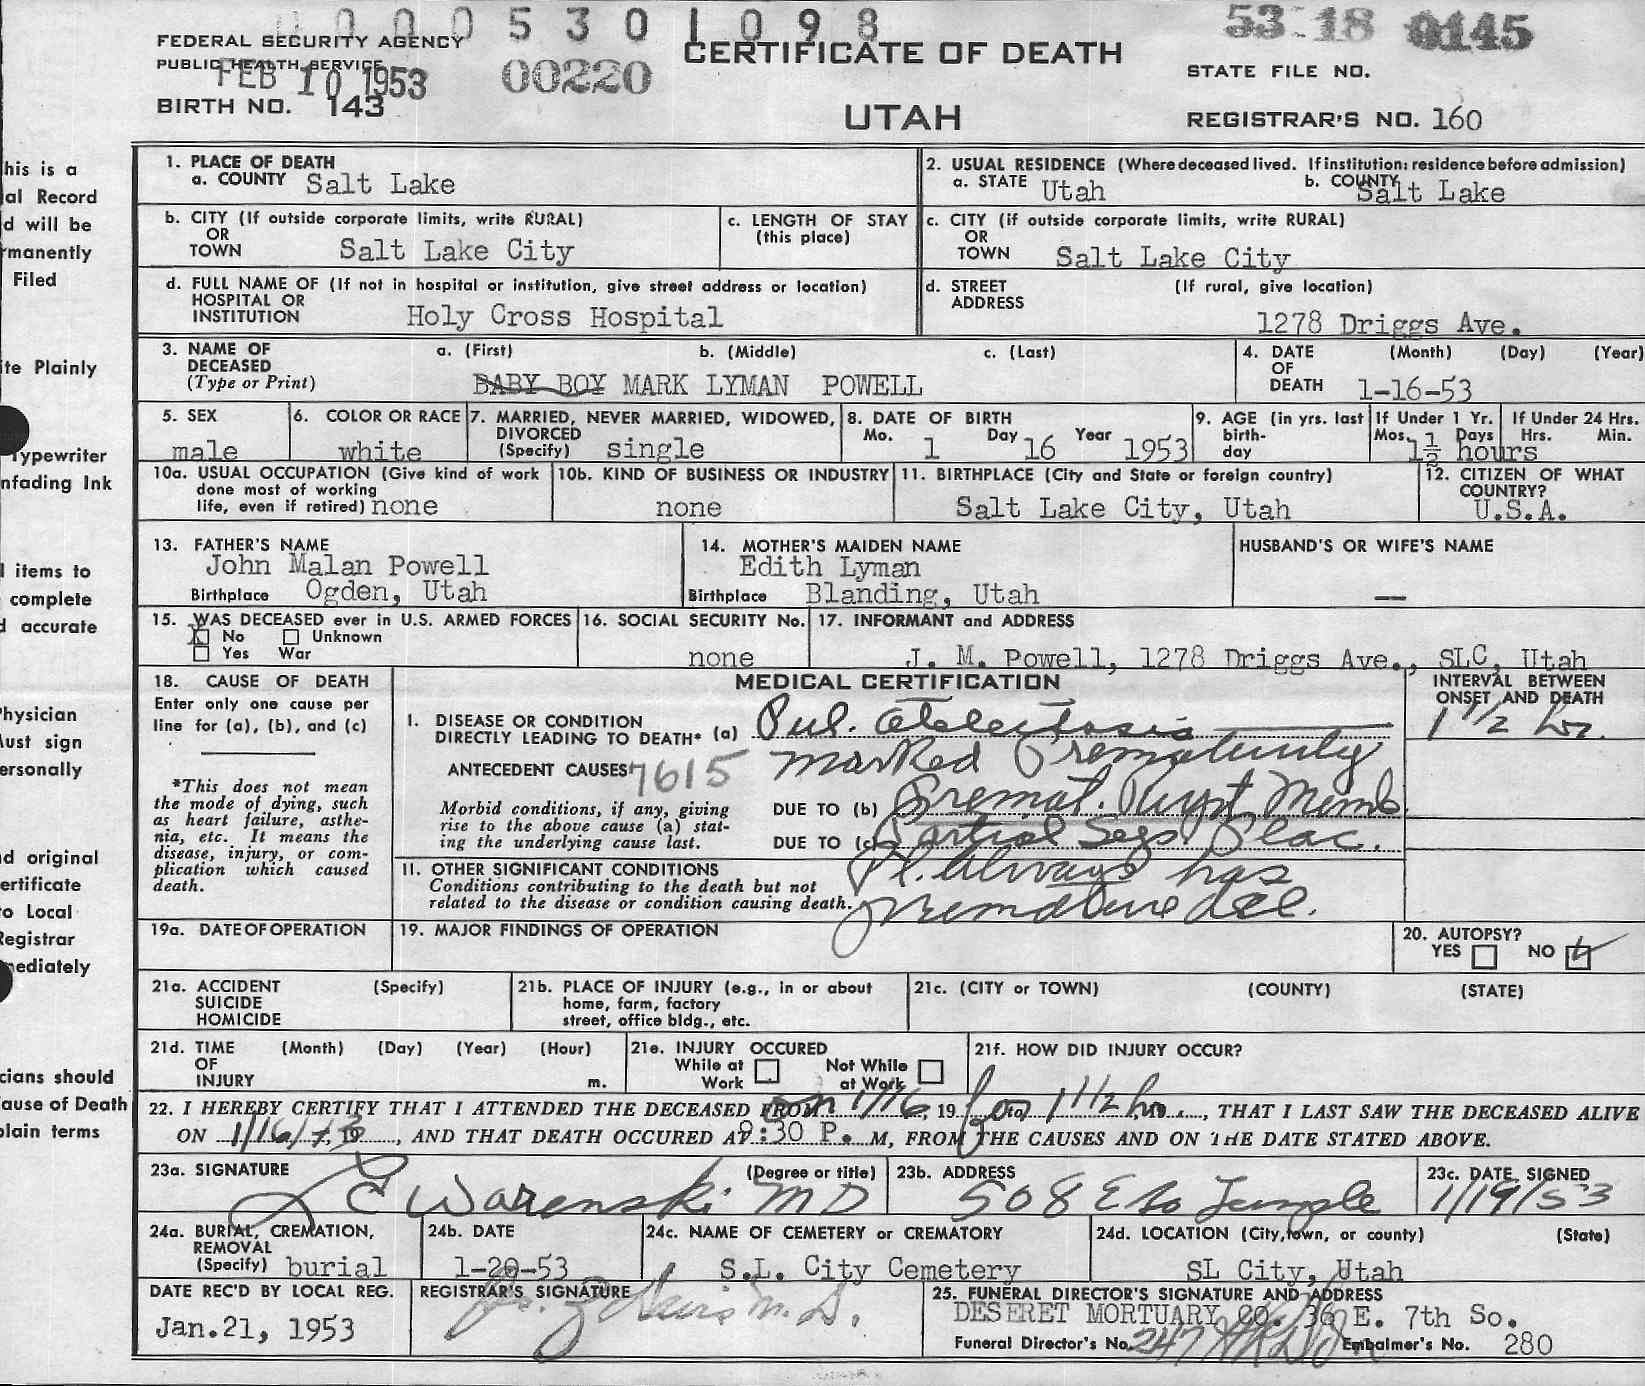 0 0 0 0 5 3 0 1 0 9 8
53-18 0145
FEDERAL SECURITY AGENCY
PUBLIC HEALTH SERVICE
FEB 10 1953
00220
CERTIFICATE OF DEATH
STATE FILE NO.
BIRTH NO. 143
UTAH
REGISTRAR'S NO. 160
his is a
al Record
d will be
rmanently
Filed
ite Plainly
Typewriter
nfading Ink
l items to
complete
d accurate
Physician
Must sign
ersonally
nd original
ertificate
to Local
Registrar
mediately
cians should
ause of Death
plain terms
1. PLACE OF DEATH
a. COUNTY Salt Lake
2. USUAL RESIDENCE (Where deceased lived. If institution: residence before admission)
a. STATE Utah b. COUNTY Salt Lake
b. CITY (If outside corporate limits, write RURAL)
OR
TOWN Salt Lake City
c. LENGTH OF STAY
(this place)
c. CITY (if outside corporate limits, write RURAL)
OR
TOWN Salt Lake City
d. FULL NAME OF (If not in hospital or institution, give street address or location)
HOSPITAL OR
INSTITUTION Holy Cross Hospital
d. STREET (If rural, give location)
ADDRESS
1278 Driggs Ave.
3. NAME OF a. (First) b. (Middle) c. (Last)
DECEASED
(Type or Print) BABY BOY MARK LYMAN POWELL
4. DATE (Month) (Day) (Year)
OF
DEATH 1-16-53
5. SEX
male
6. COLOR OR RACE
white
7. MARRIED, NEVER MARRIED, WIDOWED,
DIVORCED
(Specify) single
8. DATE OF BIRTH
Mo. 1 Day 16 Year 1953
9. AGE (in yrs. last
birth-
day
If Under 1 Yr.
Mos. Days
If Under 24 Hrs.
Hrs. Min.
1½ hours
10a. USUAL OCCUPATION (Give kind of work
done most of working
life, even if retired) none
10b. KIND OF BUSINESS OR INDUSTRY
none
11. BIRTHPLACE (City and State or foreign country)
Salt Lake City, Utah
12. CITIZEN OF WHAT
COUNTRY?
U.S.A.
13. FATHER'S NAME
John Malan Powell
Birthplace Ogden, Utah
14. MOTHER'S MAIDEN NAME
Edith Lyman
Birthplace Blanding, Utah
HUSBAND'S OR WIFE'S NAME
—
15. WAS DECEASED ever in U.S. ARMED FORCES
X No Unknown
Yes War
16. SOCIAL SECURITY No.
none
17. INFORMANT and ADDRESS
J. M. Powell, 1278 Driggs Ave., SLC, Utah
18. CAUSE OF DEATH
Enter only one cause per
line for (a), (b), and (c)
*This does not mean
the mode of dying, such
as heart failure, asthe-
nia, etc. It means the
disease, injury, or com-
plication which caused
death.
MEDICAL CERTIFICATION
INTERVAL BETWEEN
ONSET AND DEATH
I. DISEASE OR CONDITION
DIRECTLY LEADING TO DEATH* (a) Pul. Atelectasis 1 1/2 hr.
Marked Prematurity
ANTECEDENT CAUSES 7615
Morbid conditions, if any, giving
rise to the above cause (a) stat-
ing the underlying cause last.
DUE TO (b) Premat. Rupt Memb
DUE TO (c) Partial Sep. Plac.
II. OTHER SIGNIFICANT CONDITIONS
Conditions contributing to the death but not
related to the disease or condition causing death.
Pt. always has
premature del.
19a. DATE OF OPERATION
19. MAJOR FINDINGS OF OPERATION
20. AUTOPSY?
YES NO
21a. ACCIDENT (Specify)
SUICIDE
HOMICIDE
21b. PLACE OF INJURY (e.g., in or about
home, farm, factory
street, office bldg., etc.
21c. (CITY or TOWN) (COUNTY) (STATE)
21d. TIME (Month) (Day) (Year) (Hour)
OF
INJURY m.
21e. INJURY OCCURED
While at Work
Not While at Work
21f. HOW DID INJURY OCCUR?
22. I HEREBY CERTIFY THAT I ATTENDED THE DECEASED FROM on 1/16, 19 for to 1 1/2 hrs, THAT I LAST SAW THE DECEASED ALIVE
ON 1/16/53, 19, AND THAT DEATH OCCURED AT 9:30 P. M, FROM THE CAUSES AND ON THE DATE STATED ABOVE.
23a. SIGNATURE (Degree or title)
L C Warenski MD
23b. ADDRESS
508 E So Temple
23c. DATE SIGNED
1/19/53
24a. BURIAL, CREMATION,
REMOVAL
(Specify) burial
24b. DATE
1-20-53
24c. NAME OF CEMETERY OR CREMATORY
S.L. City Cemetery
24d. LOCATION (City, town, or county) (State)
SL City, Utah
DATE REC'D BY LOCAL REG.
Jan.21, 1953
REGISTRAR'S SIGNATURE
M.D.
25. FUNERAL DIRECTOR'S SIGNATURE AND ADDRESS
DESERET MORTUARY CO. 36 E. 7th So.
Funeral Director's No. 247 Embalmer's No. 280